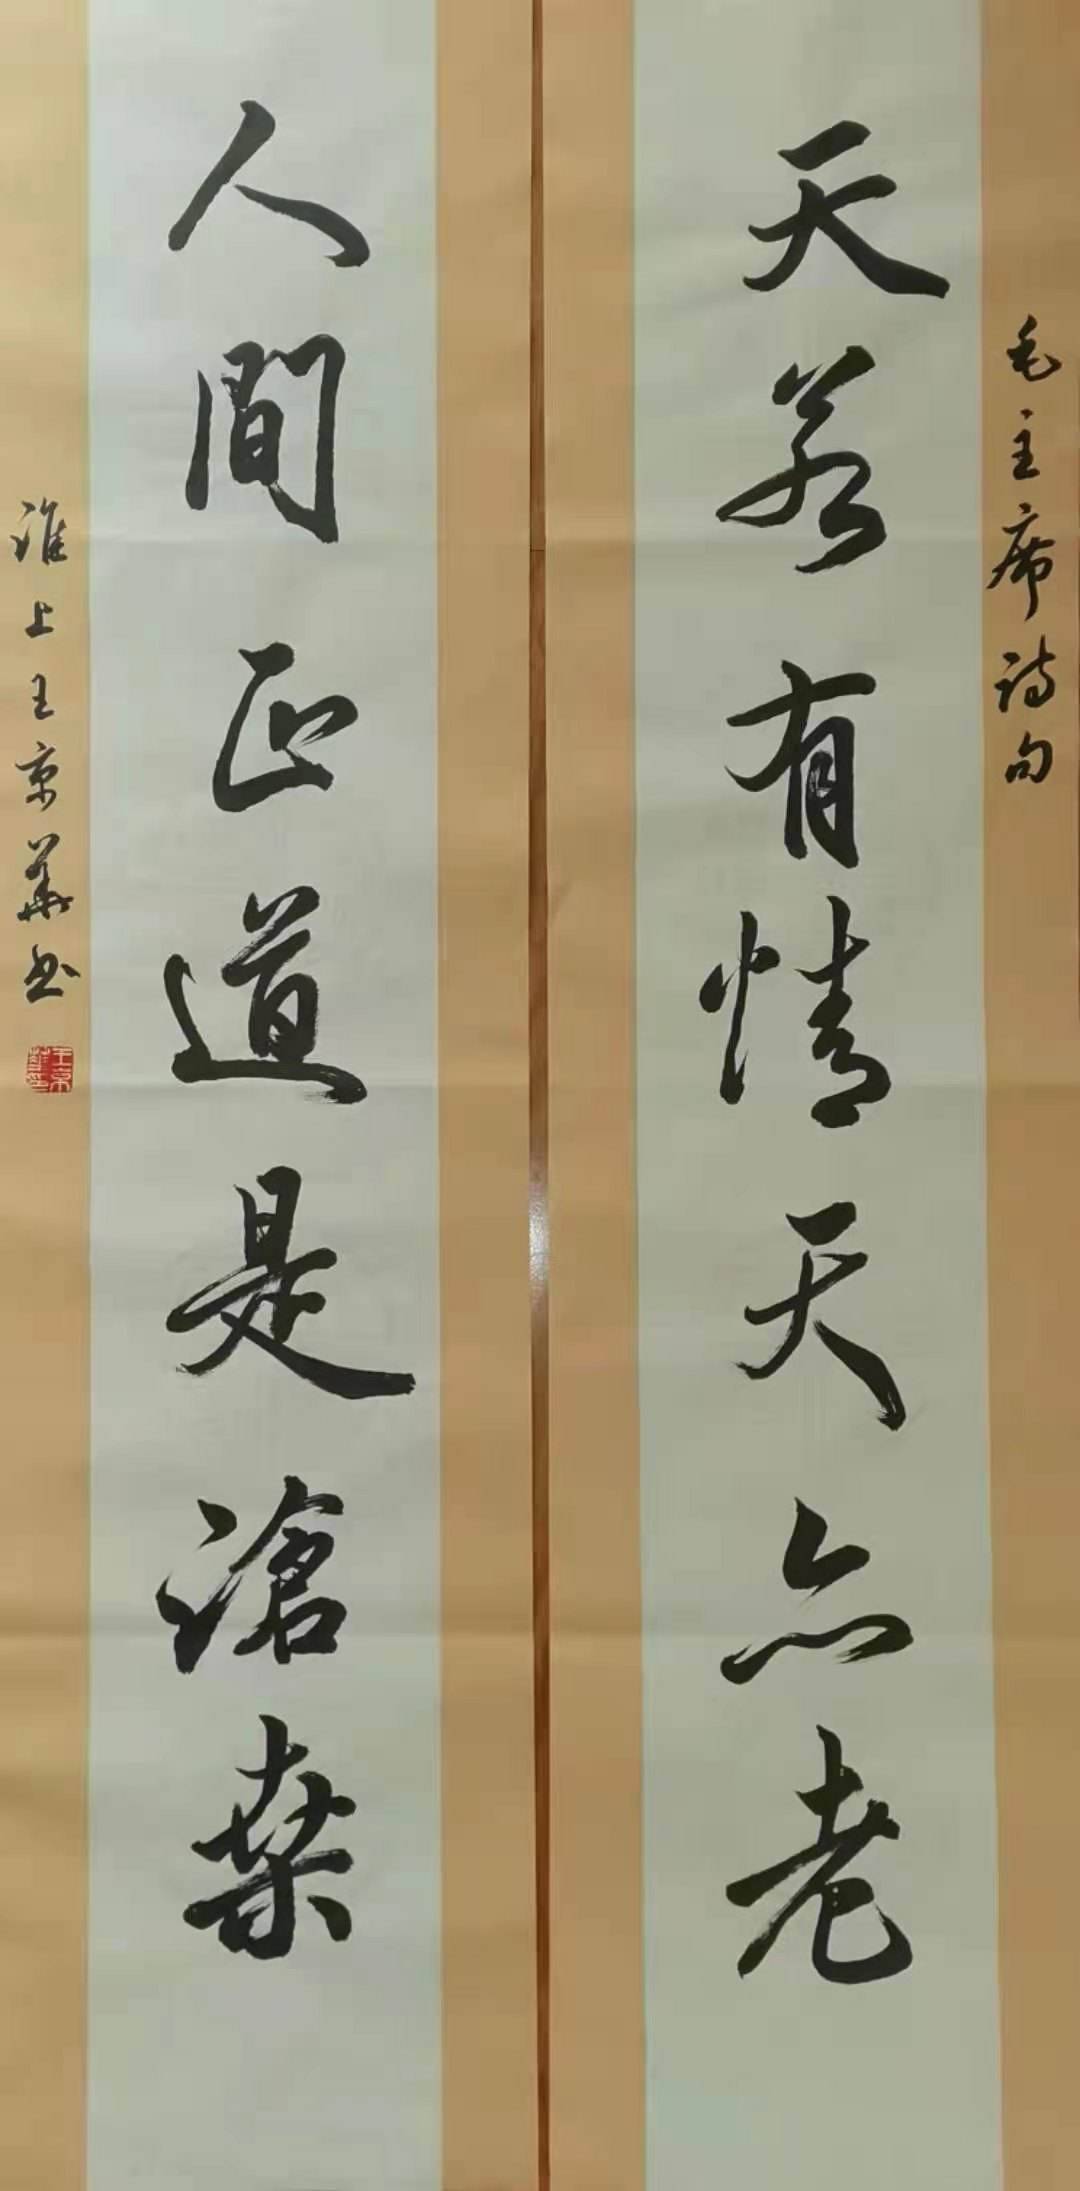 毛主席诗句
天若有情天亦老
人間正道是滄桑
淮上王京華书
王京華印